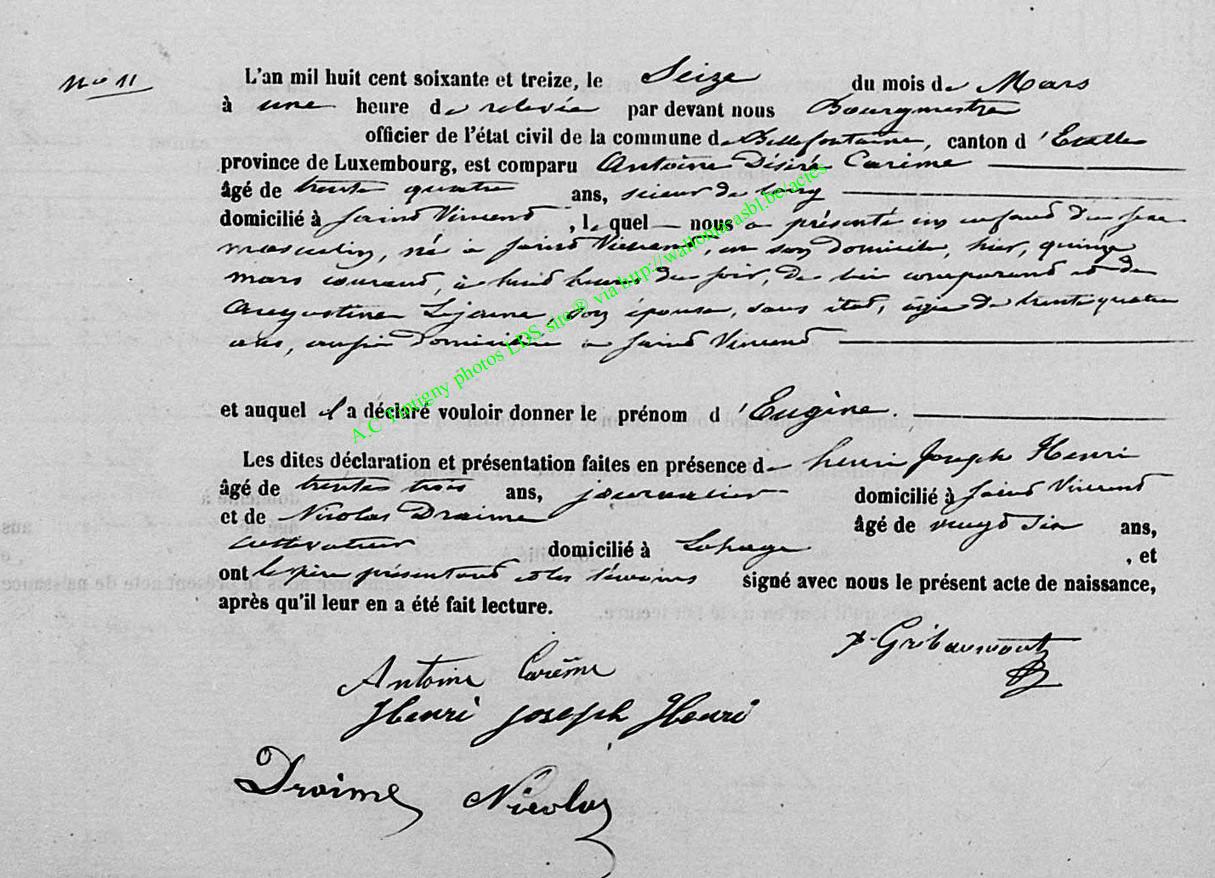 N° 11
L'an mil huit cent soixante et treize, le Seize du mois de Mars
à une heure de relevée par devant nous Bourgmestre
officier de l'état civil de la commune de Bellefontaine, canton d'Etalle
province de Luxembourg, est comparu Antoine Désiré Carème
âgé de trente quatre ans, scieur de long
domicilié à Saint Vincent, lequel nous a présenté un enfant du sexe
masculin, né à Saint Vincent, en son domicile, hier, quinze
mars courant, à huit heures du soir, de lui comparant et de
Augustine Lejeune, son épouse, sans état, âgée de trente quatre
ans, aussi domiciliée à Saint Vincent
et auquel il a déclaré vouloir donner le prénom d'Eugène.
Les dites déclaration et présentation faites en présence de henri Joseph Henri
âgé de trentes trois ans, journalier domicilié à Saint Vincent
et de Nicolas Draime âgé de vingt six ans,
cultivateur domicilié à Lahage, et
ont le père présentant et les témoins signé avec nous le présent acte de naissance,
après qu'il leur en a été fait lecture.
Gribaumont
Antoine Carème
Henri Joseph Henri
Draime Nicolas
A.C Tintigny photos LDS site® via http://wallonica.asbl.be/actes